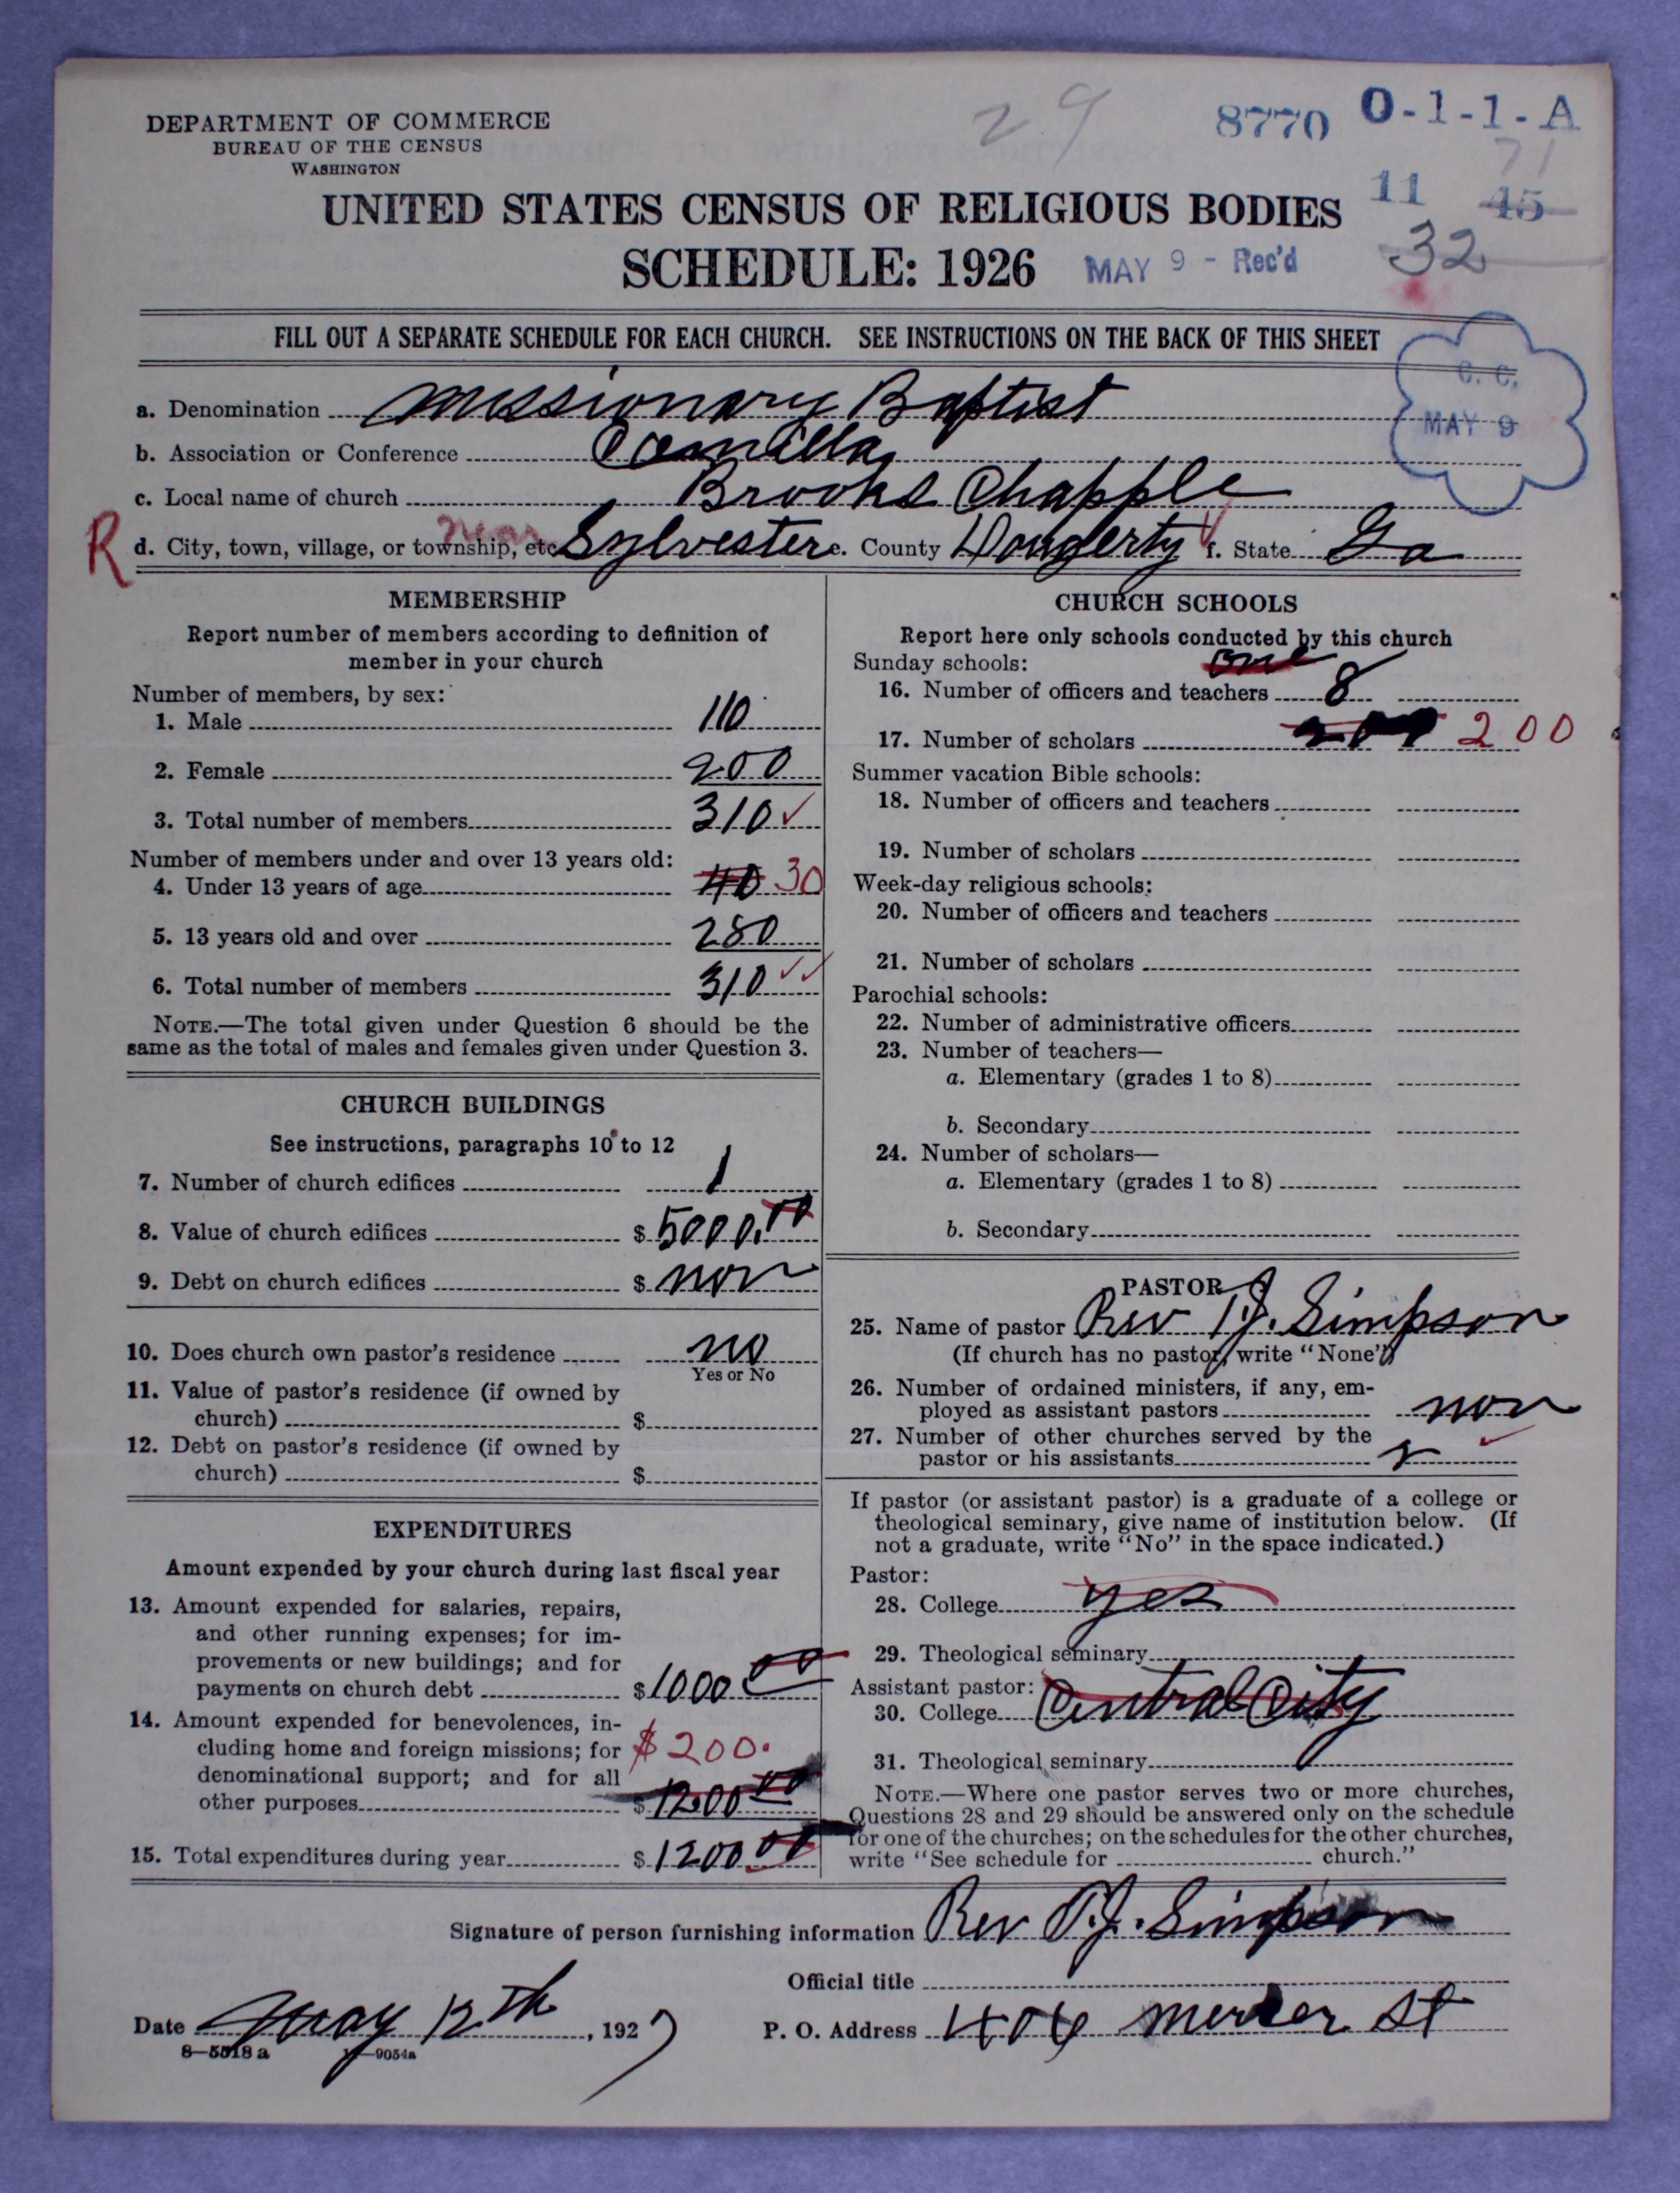 29
8770 0-1-1-A
71
DEPARTMENT OF COMMERCE
BUREAU OF THE CENSUS
WASHINGTON
11 45
UNITED STATES CENSUS OF RELIGIOUS BODIES
32
SCHEDULE: 1926 MAY 9 - Rec'd
FILL OUT A SEPARATE SCHEDULE FOR EACH CHURCH. SEE INSTRUCTIONS ON THE BACK OF THIS SHEET
C. C.
MAY 9
a. Denomination Missionary Baptist
b. Association or Conference Camilla
c. Local name of church Brooks Chapple
R d. City, town, village, or township, etc. near Sylvester e. County Dougherty f. State Ga
MEMBERSHIP
Report number of members according to definition of
member in your church
Number of members, by sex:
1. Male 110
2. Female 200
3. Total number of members 310
Number of members under and over 13 years old:
4. Under 13 years of age 40 30
5. 13 years old and over 280
6. Total number of members 310
NOTE.—The total given under Question 6 should be the
same as the total of males and females given under Question 3.
CHURCH BUILDINGS
See instructions, paragraphs 10 to 12
7. Number of church edifices 1
8. Value of church edifices $ 5000.00
9. Debt on church edifices $ non
10. Does church own pastor's residence no
Yes or No
11. Value of pastor's residence (if owned by
church) $
12. Debt on pastor's residence (if owned by
church) $
EXPENDITURES
Amount expended by your church during last fiscal year
13. Amount expended for salaries, repairs,
and other running expenses; for im-
provements or new buildings; and for
payments on church debt $ 1000 00
14. Amount expended for benevolences, in-
cluding home and foreign missions; for $200.
denominational support; and for all
other purposes $ 1200 00
15. Total expenditures during year $ 1200 00
CHURCH SCHOOLS
Report here only schools conducted by this church
Sunday schools: one
16. Number of officers and teachers 8
17. Number of scholars 200
Summer vacation Bible schools:
18. Number of officers and teachers
19. Number of scholars
Week-day religious schools:
20. Number of officers and teachers
21. Number of scholars
Parochial schools:
22. Number of administrative officers
23. Number of teachers—
a. Elementary (grades 1 to 8)
b. Secondary
24. Number of scholars—
a. Elementary (grades 1 to 8)
b. Secondary
PASTOR
25. Name of pastor Rev T.J. Simpson
(If church has no pastor, write "None")
26. Number of ordained ministers, if any, em-
ployed as assistant pastors non
27. Number of other churches served by the
pastor or his assistants
If pastor (or assistant pastor) is a graduate of a college or
theological seminary, give name of institution below. (If
not a graduate, write "No" in the space indicated.)
Pastor:
28. College yes
29. Theological seminary
Assistant pastor:
30. College Central City
31. Theological seminary
NOTE.—Where one pastor serves two or more churches,
Questions 28 and 29 should be answered only on the schedule
for one of the churches; on the schedules for the other churches,
write "See schedule for church."
Signature of person furnishing information Rev T.J. Simpson
Official title
Date May 12th, 1927
P. O. Address 404 Mercer St
8—5518 a 11—9054a